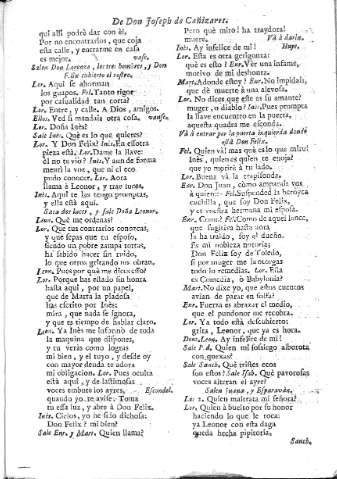 De Don Joseph de Cañizares.
qui assi podrè dar con èl.
Por no encontrarlos, que coja
esta calle, y entrarme en casa
es mejor. vase.
Salen Don Lorenzo, los tres hombres, y Don
Felix cubierto el rostro.
Lor. Aqui se ahorman
los guapos. Fel. Tanto rigor
por casualidad tan corta?
Lor. Entre, y calle. A Dios, amigos.
Ellos. Ved si mandais otra cosa. vanse.
Lor. Doña Inès?
Sale Inès. Què es lo que quieres?
Lor. Y Don Felix? Inès. En essotra
pieza està. Lor. Dame la llave:
èl no te viò? Inès. Y aun de forma
mentì la voz, que ni el eco
pudo conocer. Lor. Aora
llama à Leonor, y trae luces.
Inès. Aqui te las tengo promptas,
y ella està aqui.
Saca dos luces, y sale Doña Leonor.
Leon. Què me ordenas?
Lor. Que tus contrarios conozcas,
y que sepas que tu esposo,
siendo un pobre zampa tortas,
ha sabido hacer sin ruido,
lo que otros gastando no obran.
Leon. Pues por què me dices esso?
Lor. Porque has estado sin honra
hasta aqui, por un papel,
que de Marta la piadosa
has escrito por Inès:
mira, que nada se ignora,
y que es tiempo de hablar claro.
Leon. Ya Inès me informò de toda
la maquina que dispones,
y tu veràs como logras
mi bien, y el tuyo, y desde oy
con mayor deuda te adora
mi obligacion. Lor. Pues oculta
està aqui, y de lastimosas
voces embutelos ayres, Escondese.
quando yo te avise. Toma
tu essa luz, y abre à Don Felix.
Inès. Cielos, yo he sido dichosa:
Don Felix? mi bien!
Sale Enr. y Mart. Quien llama?
Pero què miro! ha traydora!
muere. Và à darla.
Inès. Ay infelice de mi! Huye.
Lor. Esta es otra gerigonza:
què es esto? Enr. Vèr una infame,
motivo de mi deshonra.
Mart. Adonde estoy? Enr. No impidais,
que dè muerte à una alevosa.
Lor. No dices que este es su amante?
muger, ò diablo? Inès. Pues prompta
la llave encuentro en la puerta,
aquesta quadra me esconda.
Và à entrar por la puerta izquierda donde
està Don Felix.
Fel. Quien và? mas què es lo que miro!
Inès, quien es quien te enoja?
que yo morirè à tu lado.
Lor. Buena và la trapisonda.
Enr. Don Juan, còmo amparais vos
à quien: Fel. Suspended la heroyca
cuchilla, que soy Don Felix,
y es vuestra hermana mi esposa.
Enr. Còmo? Fel. Como de aquel lance,
que fugitiva hasta aora
la ha traido, soy el dueño.
Es mi nobleza notoria;
Don Felix soy de Toledo,
si por muger me la otorgas
todo lo remedias. Lor. Esta
es Comedia, ò Babylonia?
Mart. No dixe yo, que estos cuentos
avian de parar en solfa?
Enr. Fuerza es abrazar el medio,
que el pundonor me recobra.
Lor. Ya todo està descubierto:
grita, Leonor, que ya es hora.
Dent. Leon. Ay infelice de mi!
Sale P. A. Quien mi sossiego alborota
con quexas?
Sale Sanch. Què tristes ecos
son estos? Sale Isab. Què pavorosas
voces alteran el ayre?
Salen Juana, y Esparavàn.
Los 2. Quien maltrata mi señora?
Lor. Quien à buelto por su honor
haciendo lo que le toca:
ya Leonor con esta daga
queda hecha pipitoria.
Sanch.